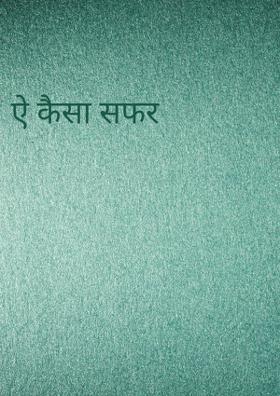 ऐ कैसा सफर